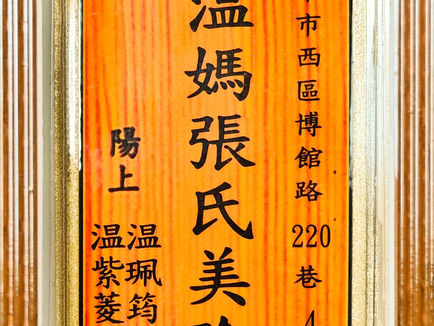 市西區博館路220巷4
溫媽張氏美
陽上
温珮筠
温紫菱